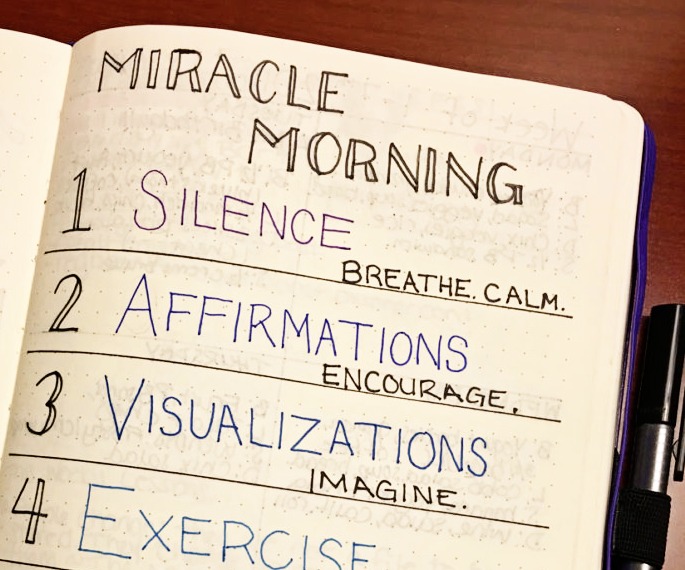 MIRACLE
MORNING
1 SILENCE
BREATHE. CALM.
2 AFFIRMATIONS
ENCOURAGE.
3 VISUALIZATIONS
IMAGINE.
4 EXERCISE